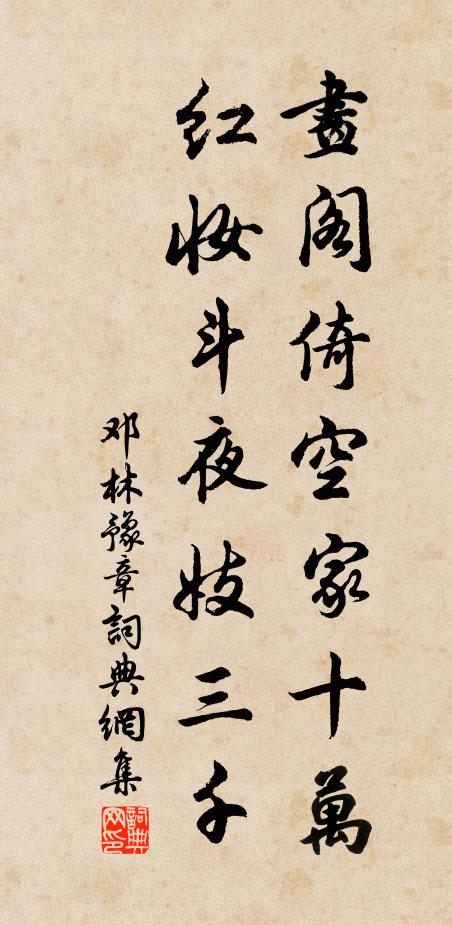 畫阁倚空家十萬
红妝斗夜妓三千
邓林豫章詞典網集
詞典网印